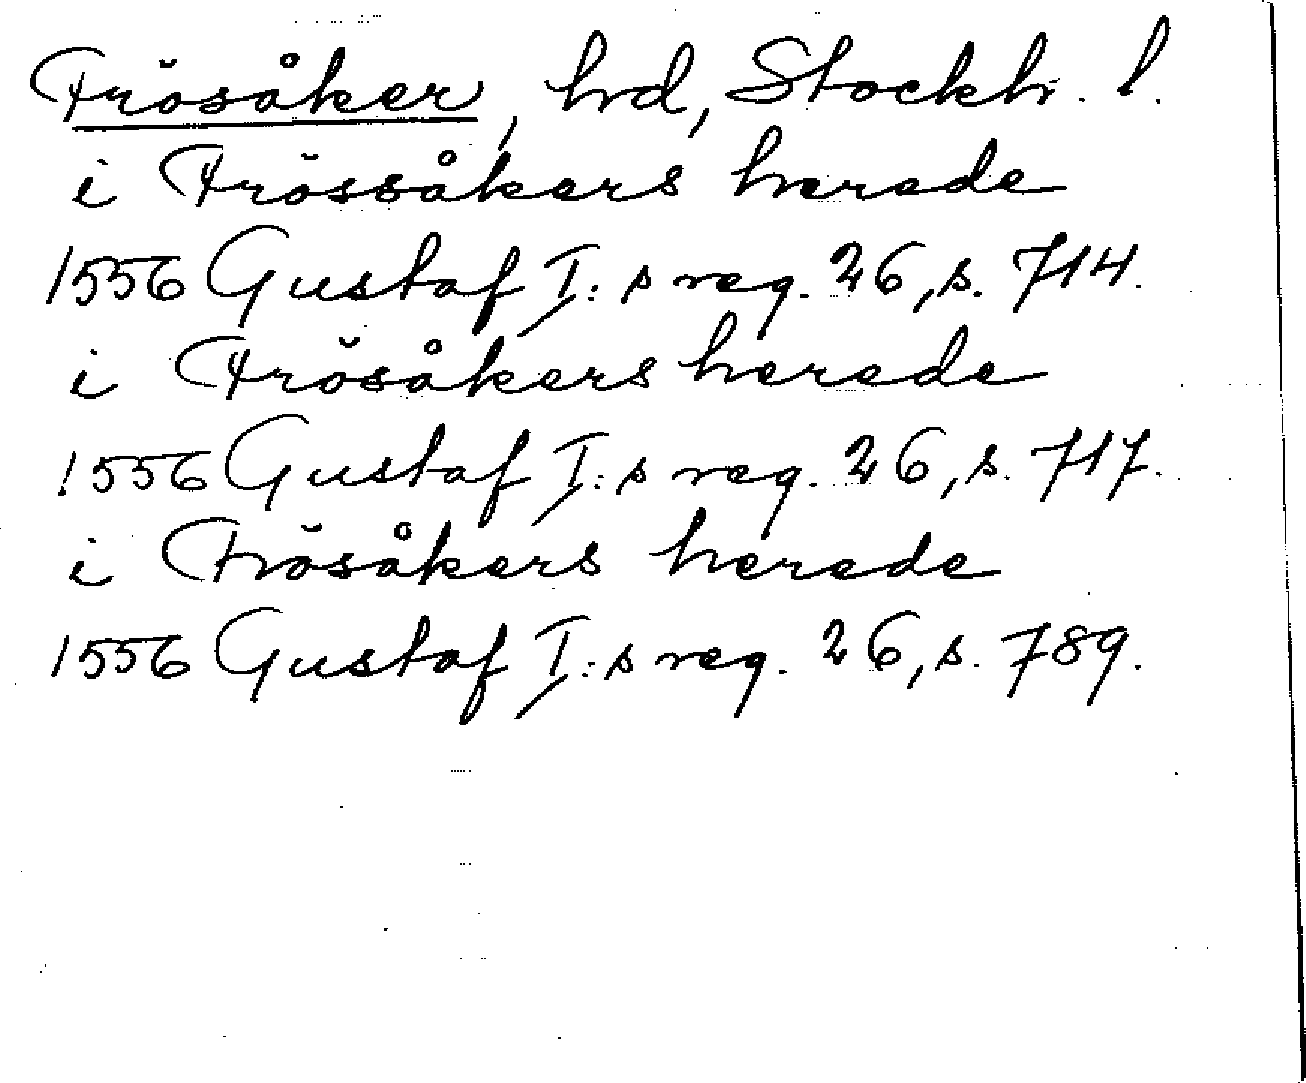 Frösåker, hrd, Stockh. l.
i Frössåkers herede
1556 Gustaf I:s reg. 26, s. 714.
i Frösåkers herede
1556 Gustaf I:s reg. 26, s. 717.
i Frösåkers herede
1556 Gustaf I:s reg. 26, s. 789.